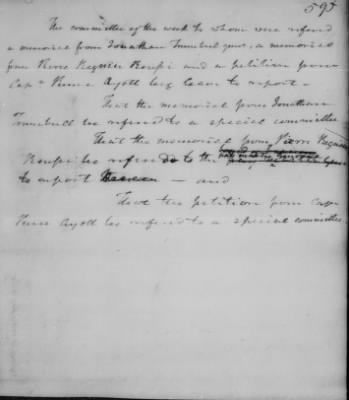 595
The committee of the week to whom were referred
a memorial from Jonathan Trumbull junr. a memorial
from Pierre Regnier Roussi and a petition from
Capn Pierre Ayott beg leave to report —
That the memorial from Jonathan
Trumbull be referred to a special committee
That the memorial from Pierre Regnier
Roussi be referred to the
to report — and
That the petition from Capn
Pierre Ayott be referred to a special committee